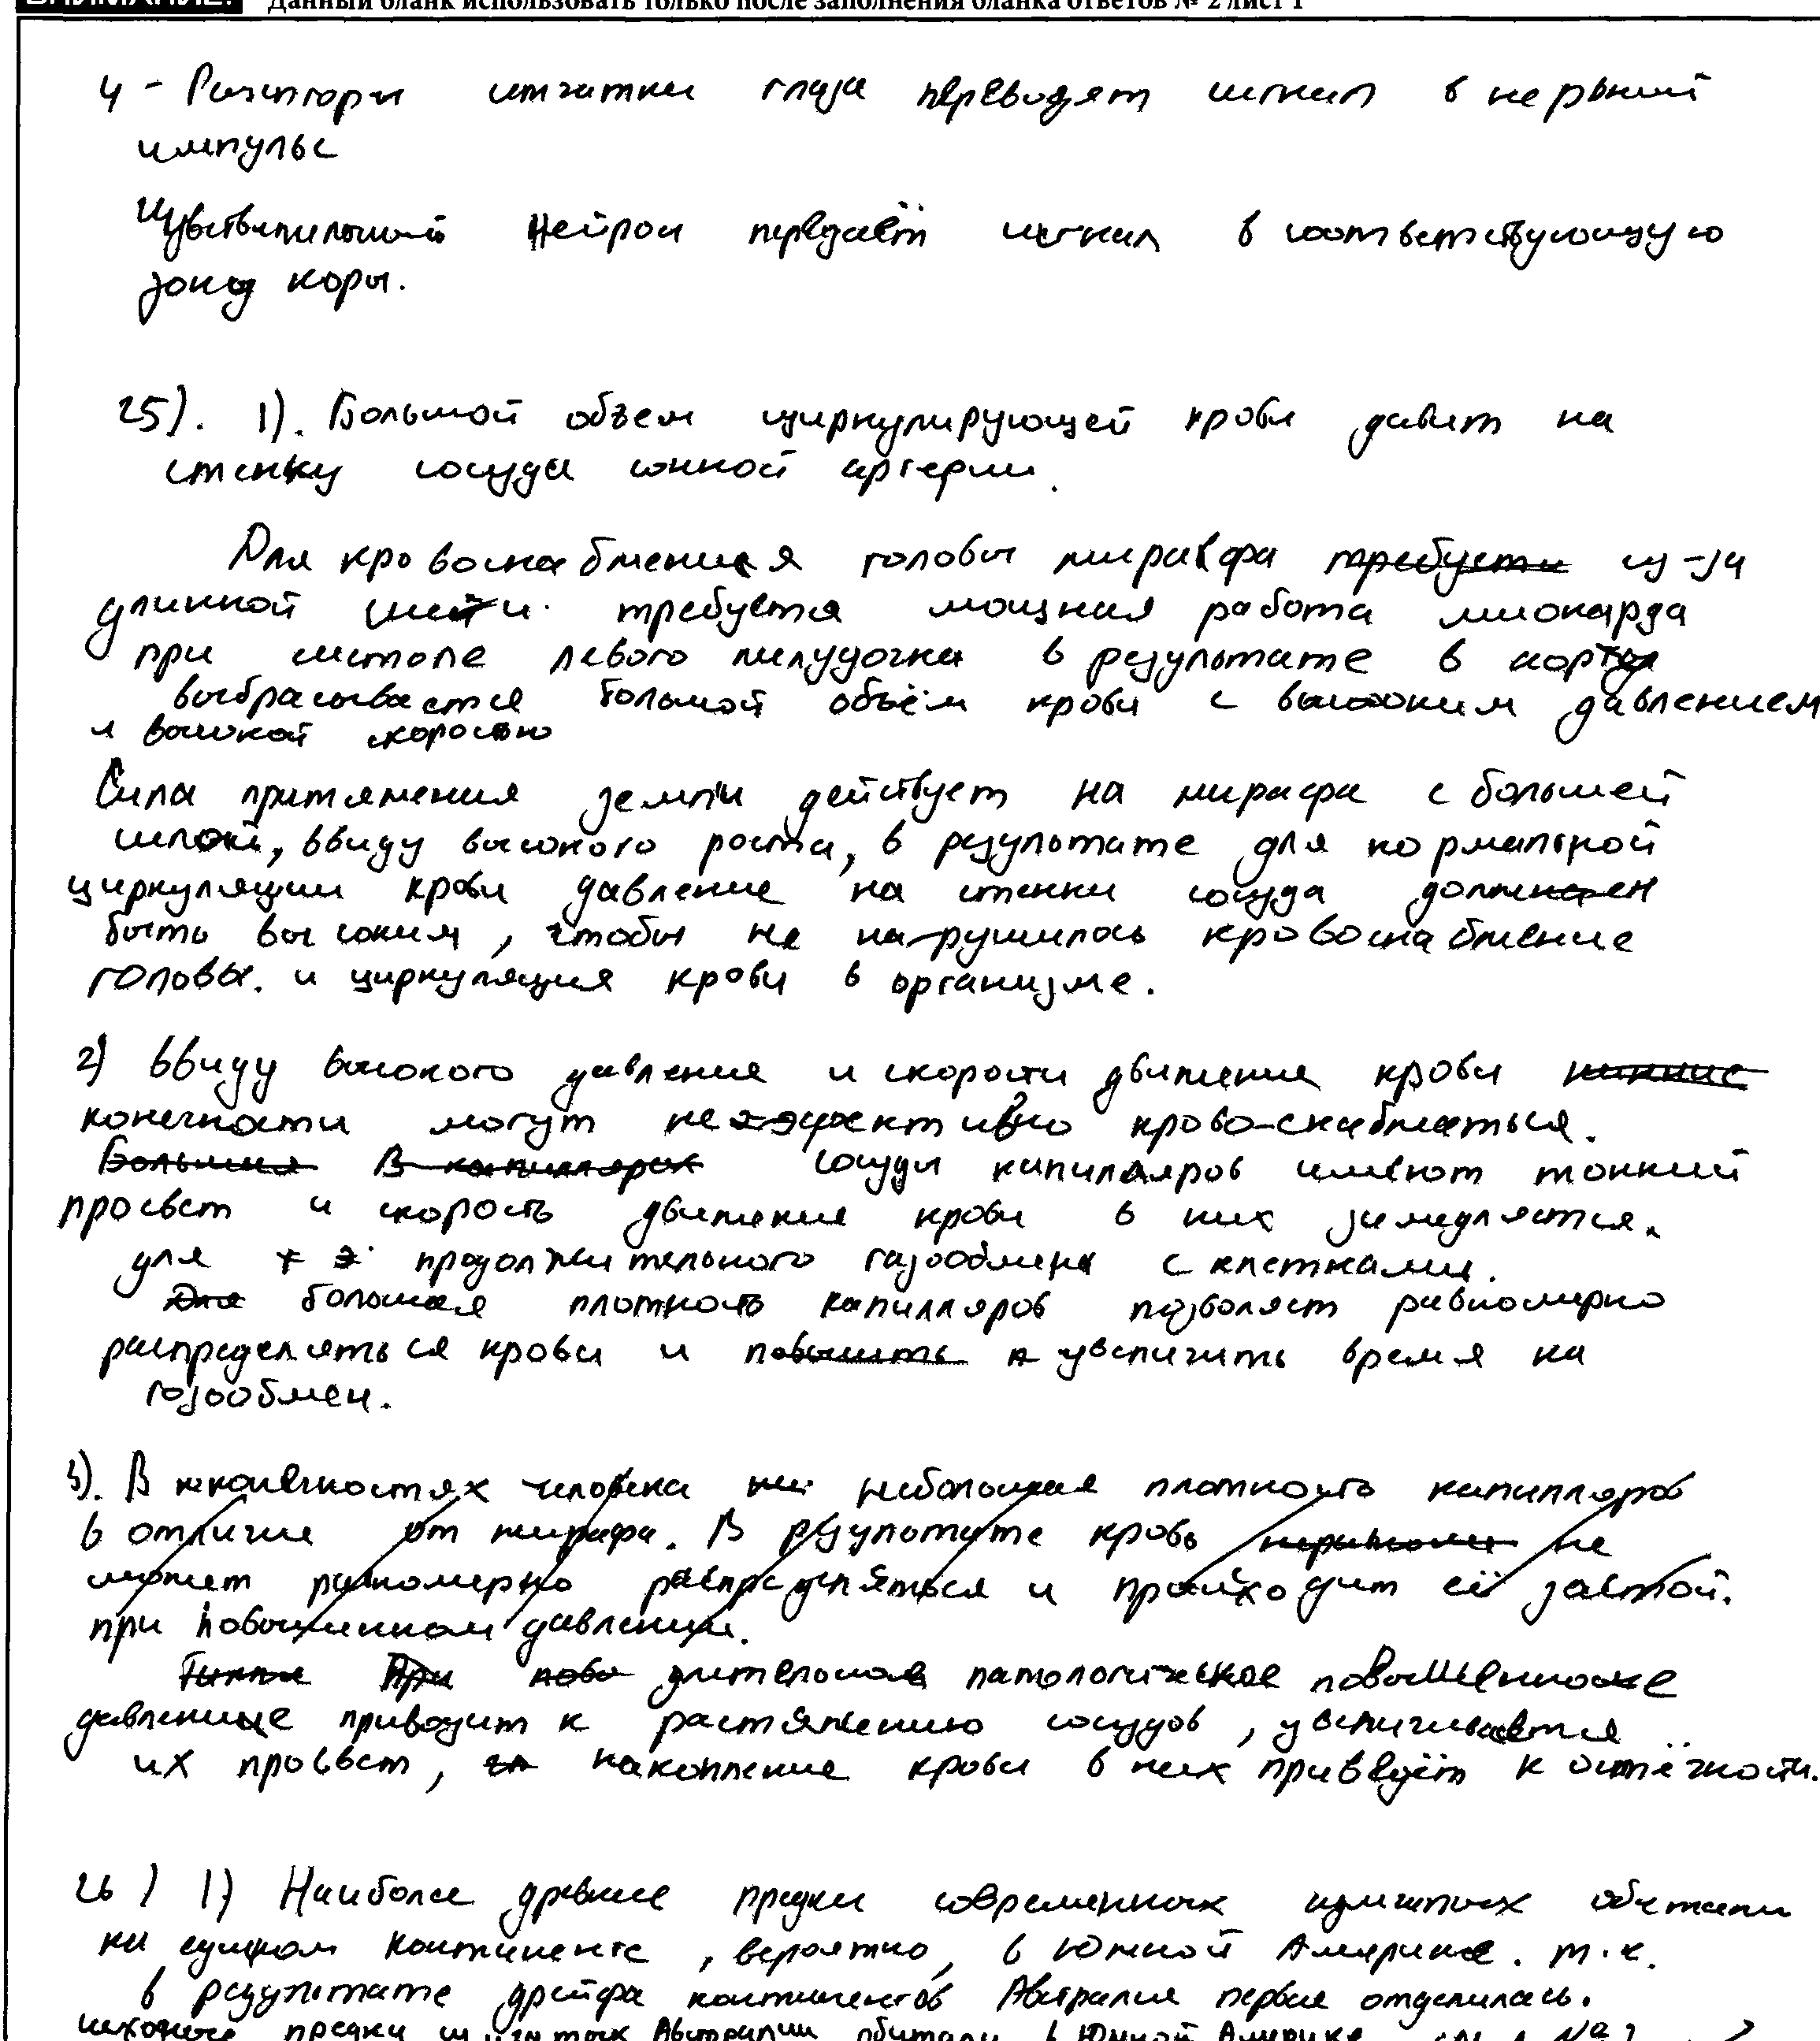 ВНИМАНИЕ! Данный бланк использовать только после заполнения бланка ответов № 2 лист 1
4 - Рецепторы сетчатки глаза переводят сигнал в нервный
импульс
Чувствительный нейрон передаёт сигнал в соответствующую
зону коры.
25). 1). Большой объем циркулирующей крови давит на
стенку сосуда сонной артерии.
Для кровоснабжения головы жирафа требуети из-за
длинной шеи требуется мощная работа миокарда
при систоле левого желудочка в результате в аорту
выбрасывается большой объём крови с высоким давлением
и высокой скоростью
Сила притяжения земли действует на жирафа с большей
силой, ввиду высокого роста, в результате для нормальной
циркуляции крови давление на стенки сосуда должен
быть высоким, чтобы не нарушилось кровоснабжение
головы. и циркуляция крови в организме.
2) Ввиду высокого давления и скорости движения крови нижние
конечности могут неэффективно крово-снабжаться.
Большая В капиллярах Сосуды капилляров имеют тонкий
просвет и скорость движения крови в них замедляется.
для продолжительного газообмена с клетками.
Для большая плотность капилляров позволяет равномерно
распределяться крови и повысить увеличить время на
газообмен.
3). В конечностях человека небольшая плотность капилляров
в отличие от жирафа. В результате кровь не
может равномерно распределяться и происходит её застой.
при повышенном давлении.
При повы длительное патологическое повышенное
давление приводит к растяжению сосудов, увеличивается
их просвет, накопление крови в них приведёт к отёчности.
26) 1) Наиболее древние предки современных сумчатых обитали
на едином континенте, вероятно, в Южной Америке. т.к.
в результате дрейфа континентов Австралия первая отделилась.
предки Австралии обитали в Южной Америке